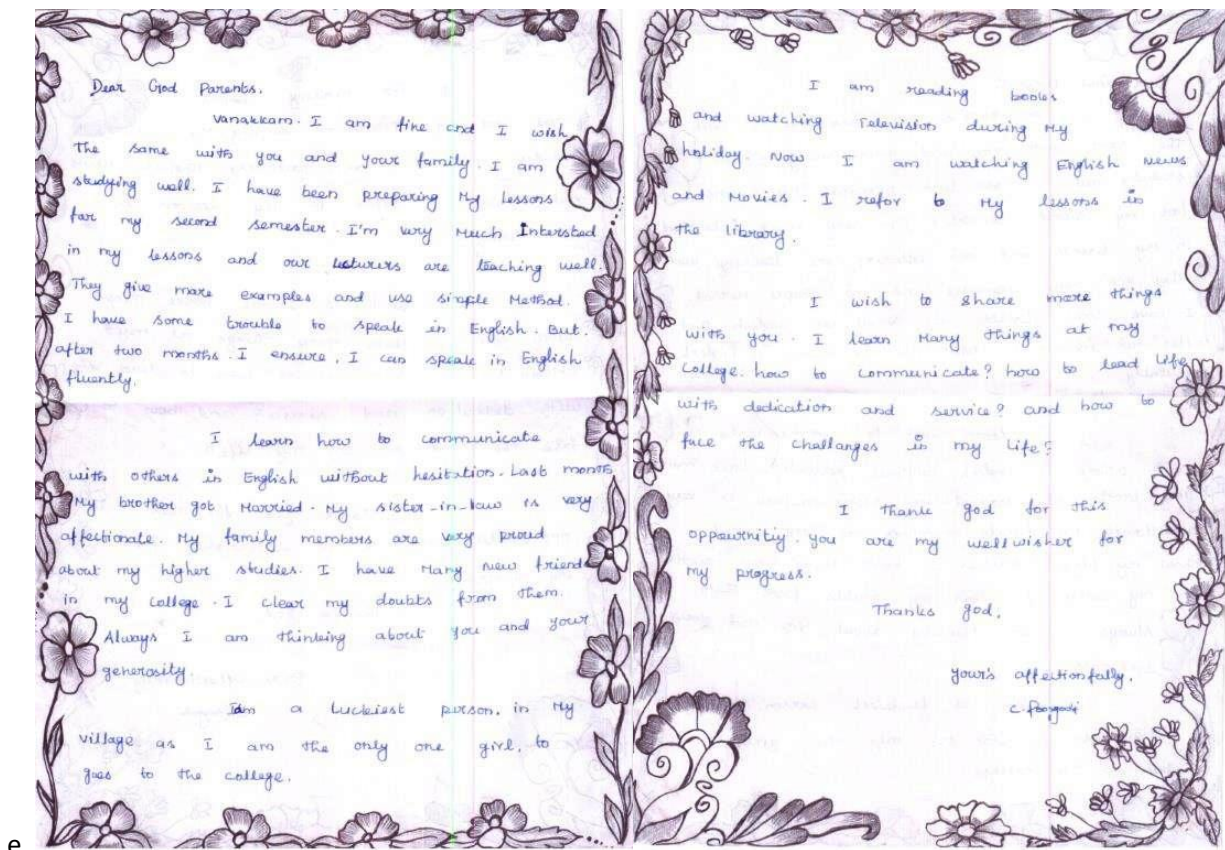 Dear God Parents.
vanakkam. I am fine and I wish
The same with you and your family. I am
studying well. I have been preparing My lessons
for my second semester. I'm very Much Intersted
in my lessons and our lecturers are teaching well.
They give more examples and use simple Method.
I have some trouble to speak in English. But.
after two months. I ensure, I can speak in English
fluently.
I learn how to communicate
with others in English without hesitation. Last month
My brother got Married. My sister-in-law is very
affectionate. My family members are very proud
about my higher studies. I have Many new friends
in my college. I clear my doubts from them.
Always I am thinking about you and your
generosity
Iam a Luckiest person. in My
village as I am the only one girl. to
goes to the college.
I am reading books
and watching Television during My
holiday. Now I am watching English News
and Movies. I refer to My lessons in
the library.
I wish to share more things
with you. I learn Many things at my
College. how to communicate? how to lead life
with dedication and service? and how to
face the challanges in my life?
I Thank god for this
oppowrnitiy. you are my wellwisher for
my progress.
Thanks god,
yours affectionfally.
C.
e